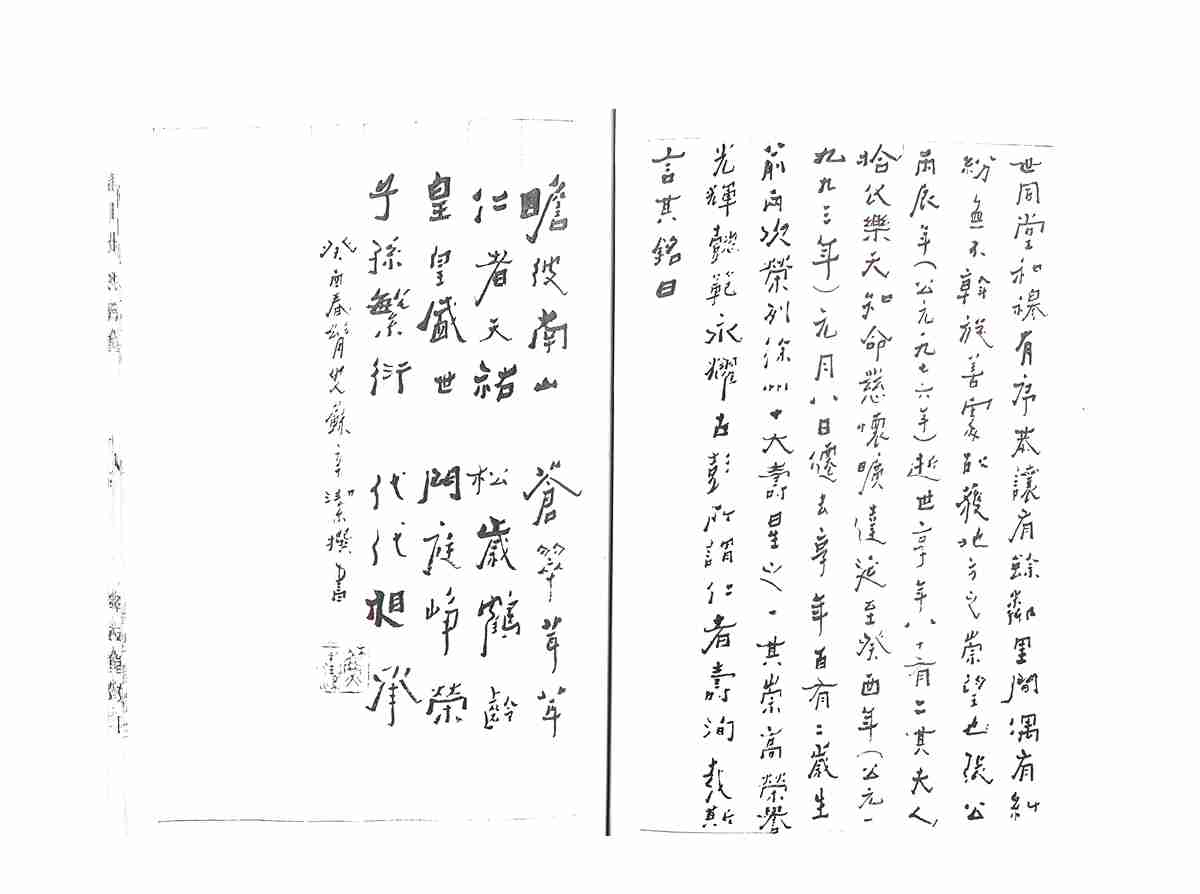 世同堂和穆有序恭讓有餘鄰里間偶有糾
紛無不斡旋善處頗獲地方之崇望也張公
丙辰年(公元一九七六年)逝世享年八十有二其夫人
哈氏樂天知命慈懷曠達延至癸酉年(公元一
九九三年)元月八日僊去享年百有二歲生
前兩次榮列徐州十大壽星之一其崇高榮譽
光輝懿範永耀古彭所謂仁者壽洵哉斯
言其銘曰
瞻彼南山 蒼翠茸茸
仁者天祐 松歲鶴齡
皇皇盛世 門庭崢榮
子孫繁衍 代代相承
癸酉春 蘇辛潔撰書